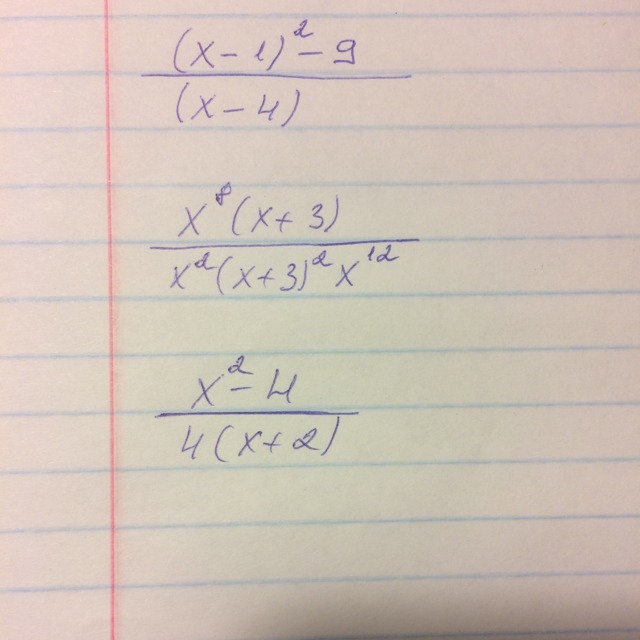 (x-1)²-9
(x-4)
x⁸(x+3)
x²(x+3)²x¹²
x²-4
4(x+2)